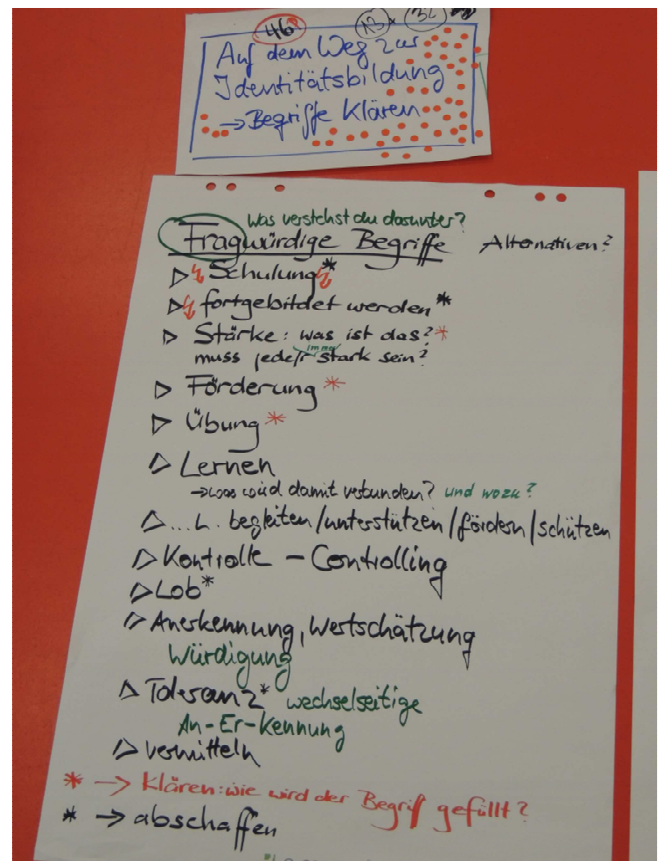 46 13 32
Auf dem Weg zur
Identitätsbildung
→ Begriffe klären
Was verstehst du darunter?
Fragwürdige Begriffe Alternativen?
▷ Schulung *
▷ fortgebildet werden *
▷ Stärke: was ist das? *
immer
muss jede/r stark sein?
▷ Förderung *
▷ Übung *
▷ Lernen
→ was wird damit verbunden? und wozu?
▷ ... L. begleiten/unterstützen/fördern/schützen
▷ Kontrolle – Controlling
▷ Lob *
▷ Anerkennung, Wertschätzung
Würdigung
▷ Toleranz * wechselseitige
An-Er-Kennung
▷ vermitteln
* → klären: wie wird der Begriff gefüllt?
* → abschaffen